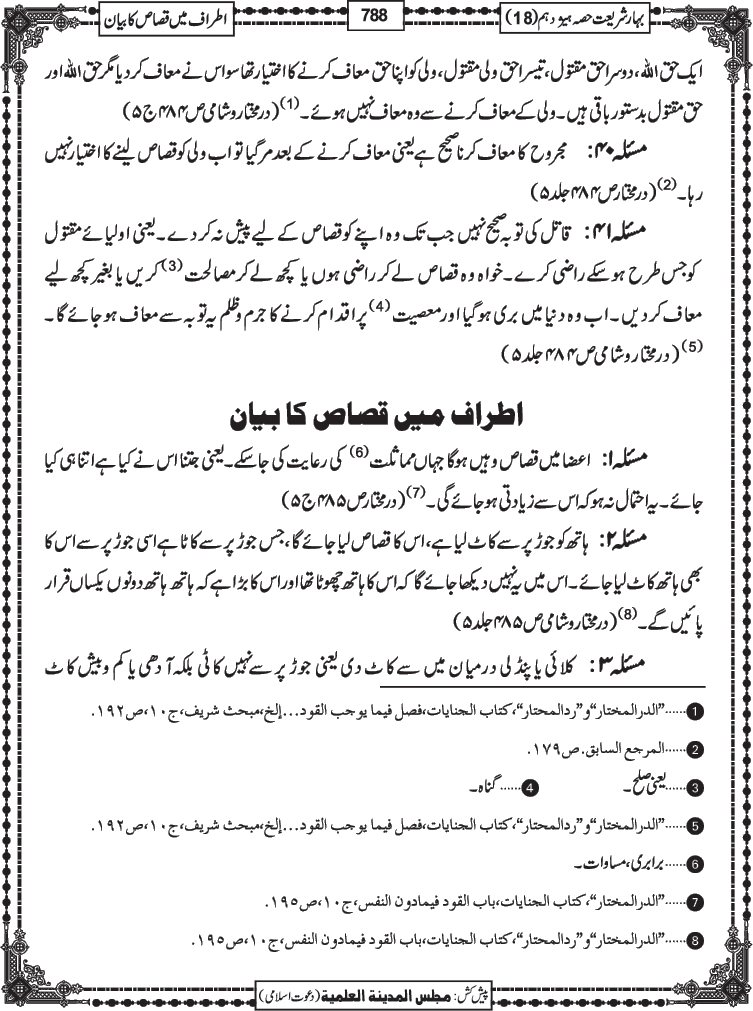 بہار شریعت حصہ ہیژدہم (18)
788
اطراف میں قصاص کا بیان
ایک حق اللہ، دوسرا حق مقتول، تیسرا حق ولی مقتول، ولی کو اپنا حق معاف کرنے کا اختیار تھا سو اس نے معاف کر دیا مگر حق اللہ اور
حق مقتول بدستور باقی ہیں۔ ولی کے معاف کرنے سے وہ معاف نہیں ہوئے۔(1) (درمختار و شامی ص ۴۸۴ ج ۵)
مسئلہ ۴۰: مجروح کا معاف کرنا صحیح ہے یعنی معاف کرنے کے بعد مر گیا تو اب ولی کو قصاص لینے کا اختیار نہیں
رہا۔(2) (درمختار ص ۴۸۴ جلد ۵)
مسئلہ ۴۱: قاتل کی توبہ صحیح نہیں جب تک وہ اپنے کو قصاص کے لیے پیش نہ کر دے۔ یعنی اولیائے مقتول
کو جس طرح ہو سکے راضی کرے۔ خواہ وہ قصاص لے کر راضی ہوں یا کچھ لے کر مصالحت(3) کریں یا بغیر کچھ لیے
معاف کر دیں۔ اب وہ دنیا میں بری ہو گیا اور معصیت(4) پر اقدام کرنے کا جرم و ظلم یہ توبہ سے معاف ہو جائے گا۔
(5) (درمختار و شامی ص ۴۸۴ جلد ۵)
اطراف میں قصاص کا بیان
مسئلہ ۱: اعضا میں قصاص وہیں ہوگا جہاں مماثلت(6) کی رعایت کی جا سکے۔ یعنی جتنا اس نے کیا ہے اتنا ہی کیا
جائے۔ یہ احتمال نہ ہو کہ اس سے زیادتی ہو جائے گی۔(7) (درمختار ص ۴۸۵ ج ۵)
مسئلہ ۲: ہاتھ کو جوڑ پر سے کاٹ لیا ہے، اس کا قصاص لیا جائے گا، جس جوڑ پر سے کاٹا ہے اسی جوڑ پر سے اس کا
بھی ہاتھ کاٹ لیا جائے۔ اس میں یہ نہیں دیکھا جائے گا کہ اس کا ہاتھ چھوٹا تھا اور اس کا بڑا ہے کہ ہاتھ ہاتھ دونوں یکساں قرار
پائیں گے۔(8) (درمختار و شامی ص ۴۸۵ جلد ۵)
مسئلہ ۳: کلائی یا پنڈلی درمیان میں سے کاٹ دی یعنی جوڑ پر سے نہیں کاٹی بلکہ آدھی یا کم و بیش کاٹ
1......"الدرالمختار"و"ردالمحتار"،کتاب الجنایات،فصل فیما یوجب القود...إلخ،مبحث شریف،ج۱۰،ص۱۹۲.
2......المرجع السابق.ص۱۷۹.
3......یعنی صلح۔ 4......گناہ۔
5......"الدرالمختار"و"ردالمحتار"،کتاب الجنایات،فصل فیما یوجب القود...إلخ،مبحث شریف،ج۱۰،ص۱۹۲.
6......برابری،مساوات۔
7......"الدرالمختار"،کتاب الجنایات،باب القود فیمادون النفس،ج۱۰،ص۱۹۵.
8......"الدرالمختار"و"ردالمحتار"،کتاب الجنایات،باب القود فیمادون النفس،ج۱۰،ص۱۹۵.
پیش کش: مجلس المدینة العلمیة (دعوت اسلامی)